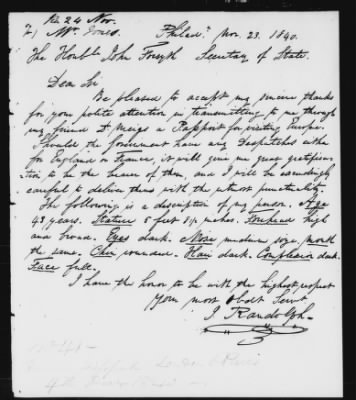 Rec 24 Nov.
Mr. Jones. Philad.ª Nov. 23. 1840.
The Honbl. John Forsyth Secretary of State.
Dear Sir
Be pleased to accept my sincere thanks
for your polite attention in transmitting to me through
my friend Meigs a Passport for visiting Europe.
Should the government have any Despatches either
for England or France, it will give me great gratifica-
tion to be the bearer of them, and I will be exceedingly
careful to deliver them with the utmost punctuality.
The following is a description of my person. Age
48 years. Stature 5 feet 8½ inches. Forehead high
and broad. Eyes dark. Nose medium size, mouth
the same. Chin rounded. Hair dark. Complexion dark.
Face full.
I have the honor to be with the highest respect
Your most Obdt Servt.
J. Randolph.